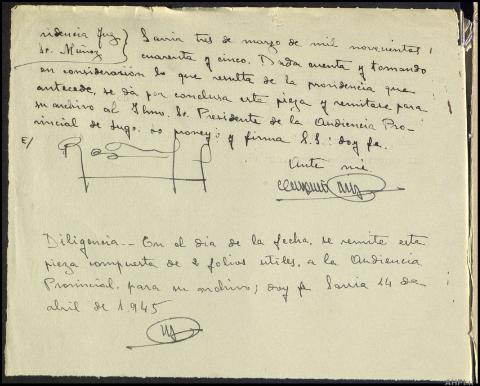 ridencia Juz } Sarria tres de marzo de mil novecientos
Sr. Muñoz } cuarenta y cinco. Dada cuenta y tomando
en consideración lo que resulta de la providencia que
antecede, se da por conclusa esta pieza y remitase para
su archivo al Ilmo. Sr. Presidente de la Audiencia Pro-
vincial de Lugo. Lo proveyó y firma S.S.: doy fe.
E/
Ante mi
Diligencia.-- En el dia de la fecha, se remite esta
pieza compuesta de 2 folios utiles, a la Audiencia
Provincial, para su archivo; doy fe Sarria 14 de
abril de 1.945